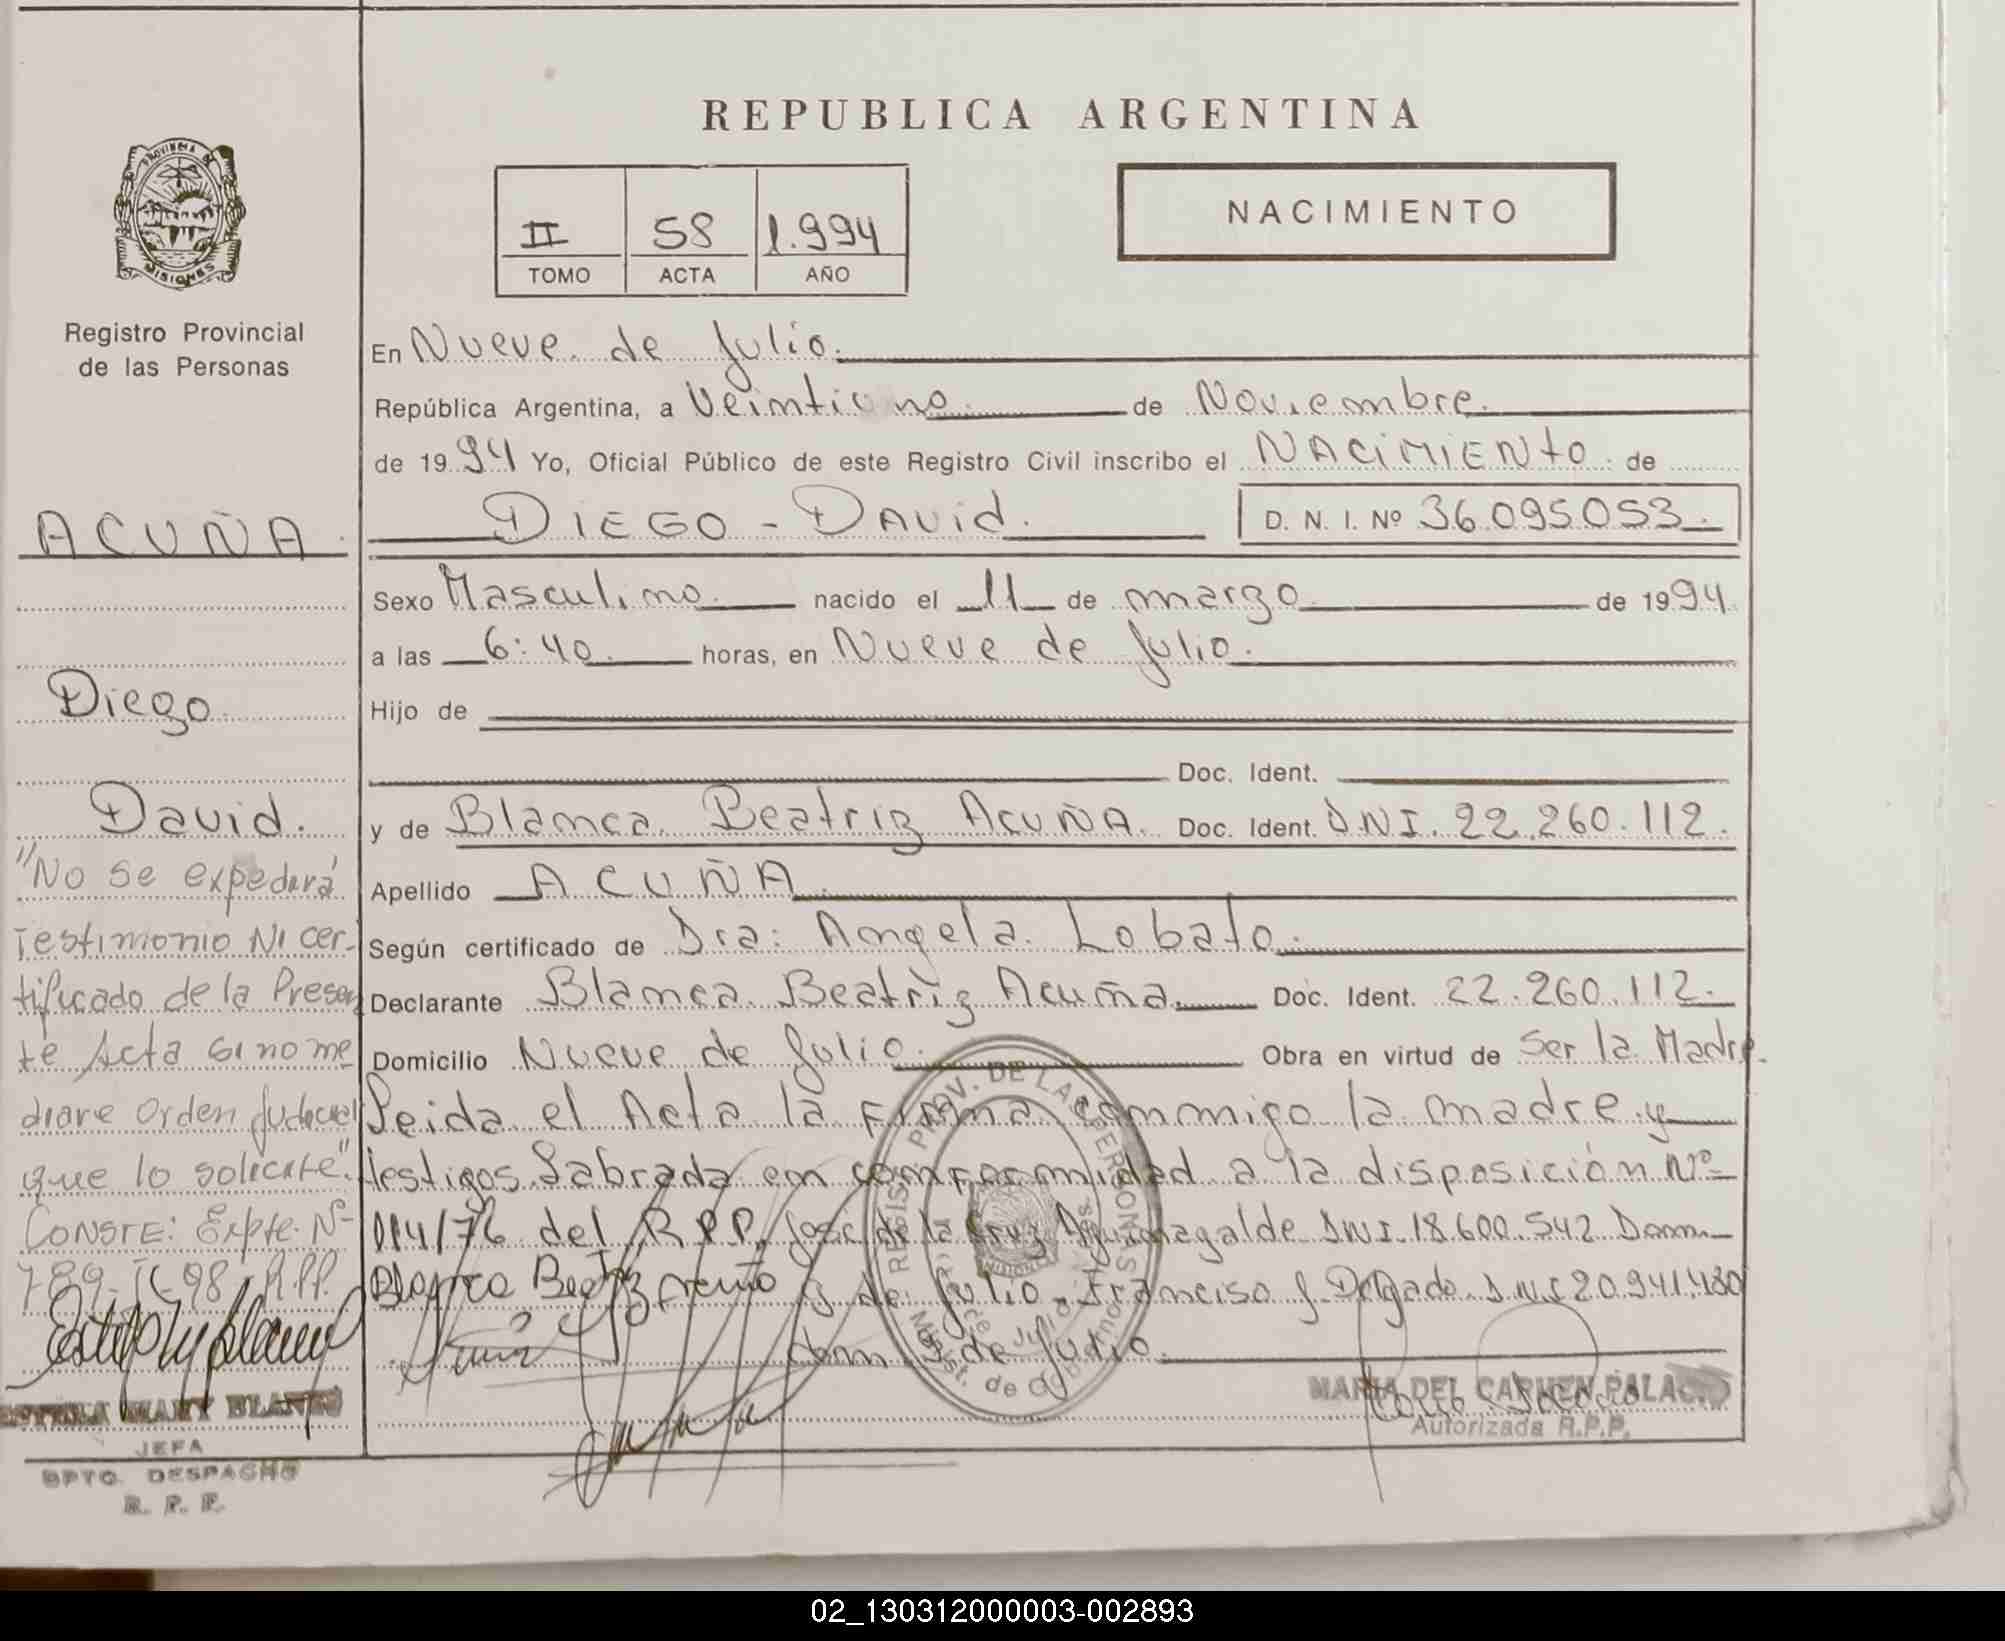 REPUBLICA ARGENTINA
PROVINCIA DE MISIONES
II 58 1.994
TOMO ACTA AÑO
NACIMIENTO
Registro Provincial
de las Personas
ACUÑA.
Diego
David.
"No se expedirá
Testimonio Ni cer-
tificado de la Presen
te Acta si no me
diare Orden Judicial
que lo solicite".
CONSTE: Expte. Nº
789-
JEFA
DPTO. DESPACHO
R. P. P.
En Nueve de Julio.
República Argentina, a Veintiuno de Noviembre.
de 1994 Yo, Oficial Público de este Registro Civil inscribo el NACIMIENTO de
DIEGO - DAVID. D. N. I. Nº 36.095.053.
Sexo Masculino. nacido el 11 de marzo de 1994.
a las 6:40. horas, en Nueve de Julio.
Hijo de
Doc. Ident.
y de Blanca Beatriz ACUÑA. Doc. Ident. DNI. 22.260.112.
Apellido ACUÑA.
Según certificado de Dra: Angela Lobato.
Declarante Blanca Beatriz Acuña. Doc. Ident. 22.260.112.
Domicilio Nueve de Julio. Obra en virtud de Ser la Madre.
Leida el Acta la Firma conmigo la madre y
testigos. Labrada en conformidad a la disposición Nº
114/76 del R.P.P. José de la Cruz DNI. 18.600.542 Dom.
9 de Julio. Francisco J. Delgado. DNI 20.941.480
dom. 9 de Julio.
Blanca Beatriz Acuña
REGIST. PROV. DE LAS PERSONAS
MARIA DEL CARMEN PALACIO
Autorizada R.P.P.
02_130312000003-002893